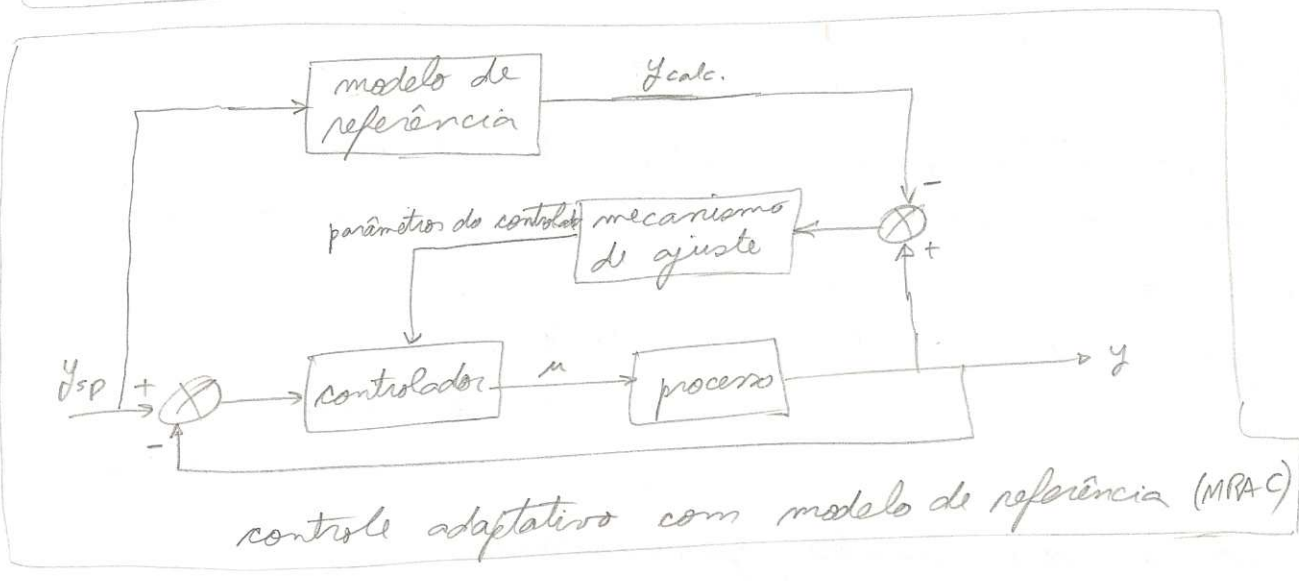 modelo de
referência
ycalc.
-
+
parâmetros do controlador
mecanismo
de ajuste
ysp
+
-
controlador
u
processo
y
controle adaptativo com modelo de referência (MRAC)